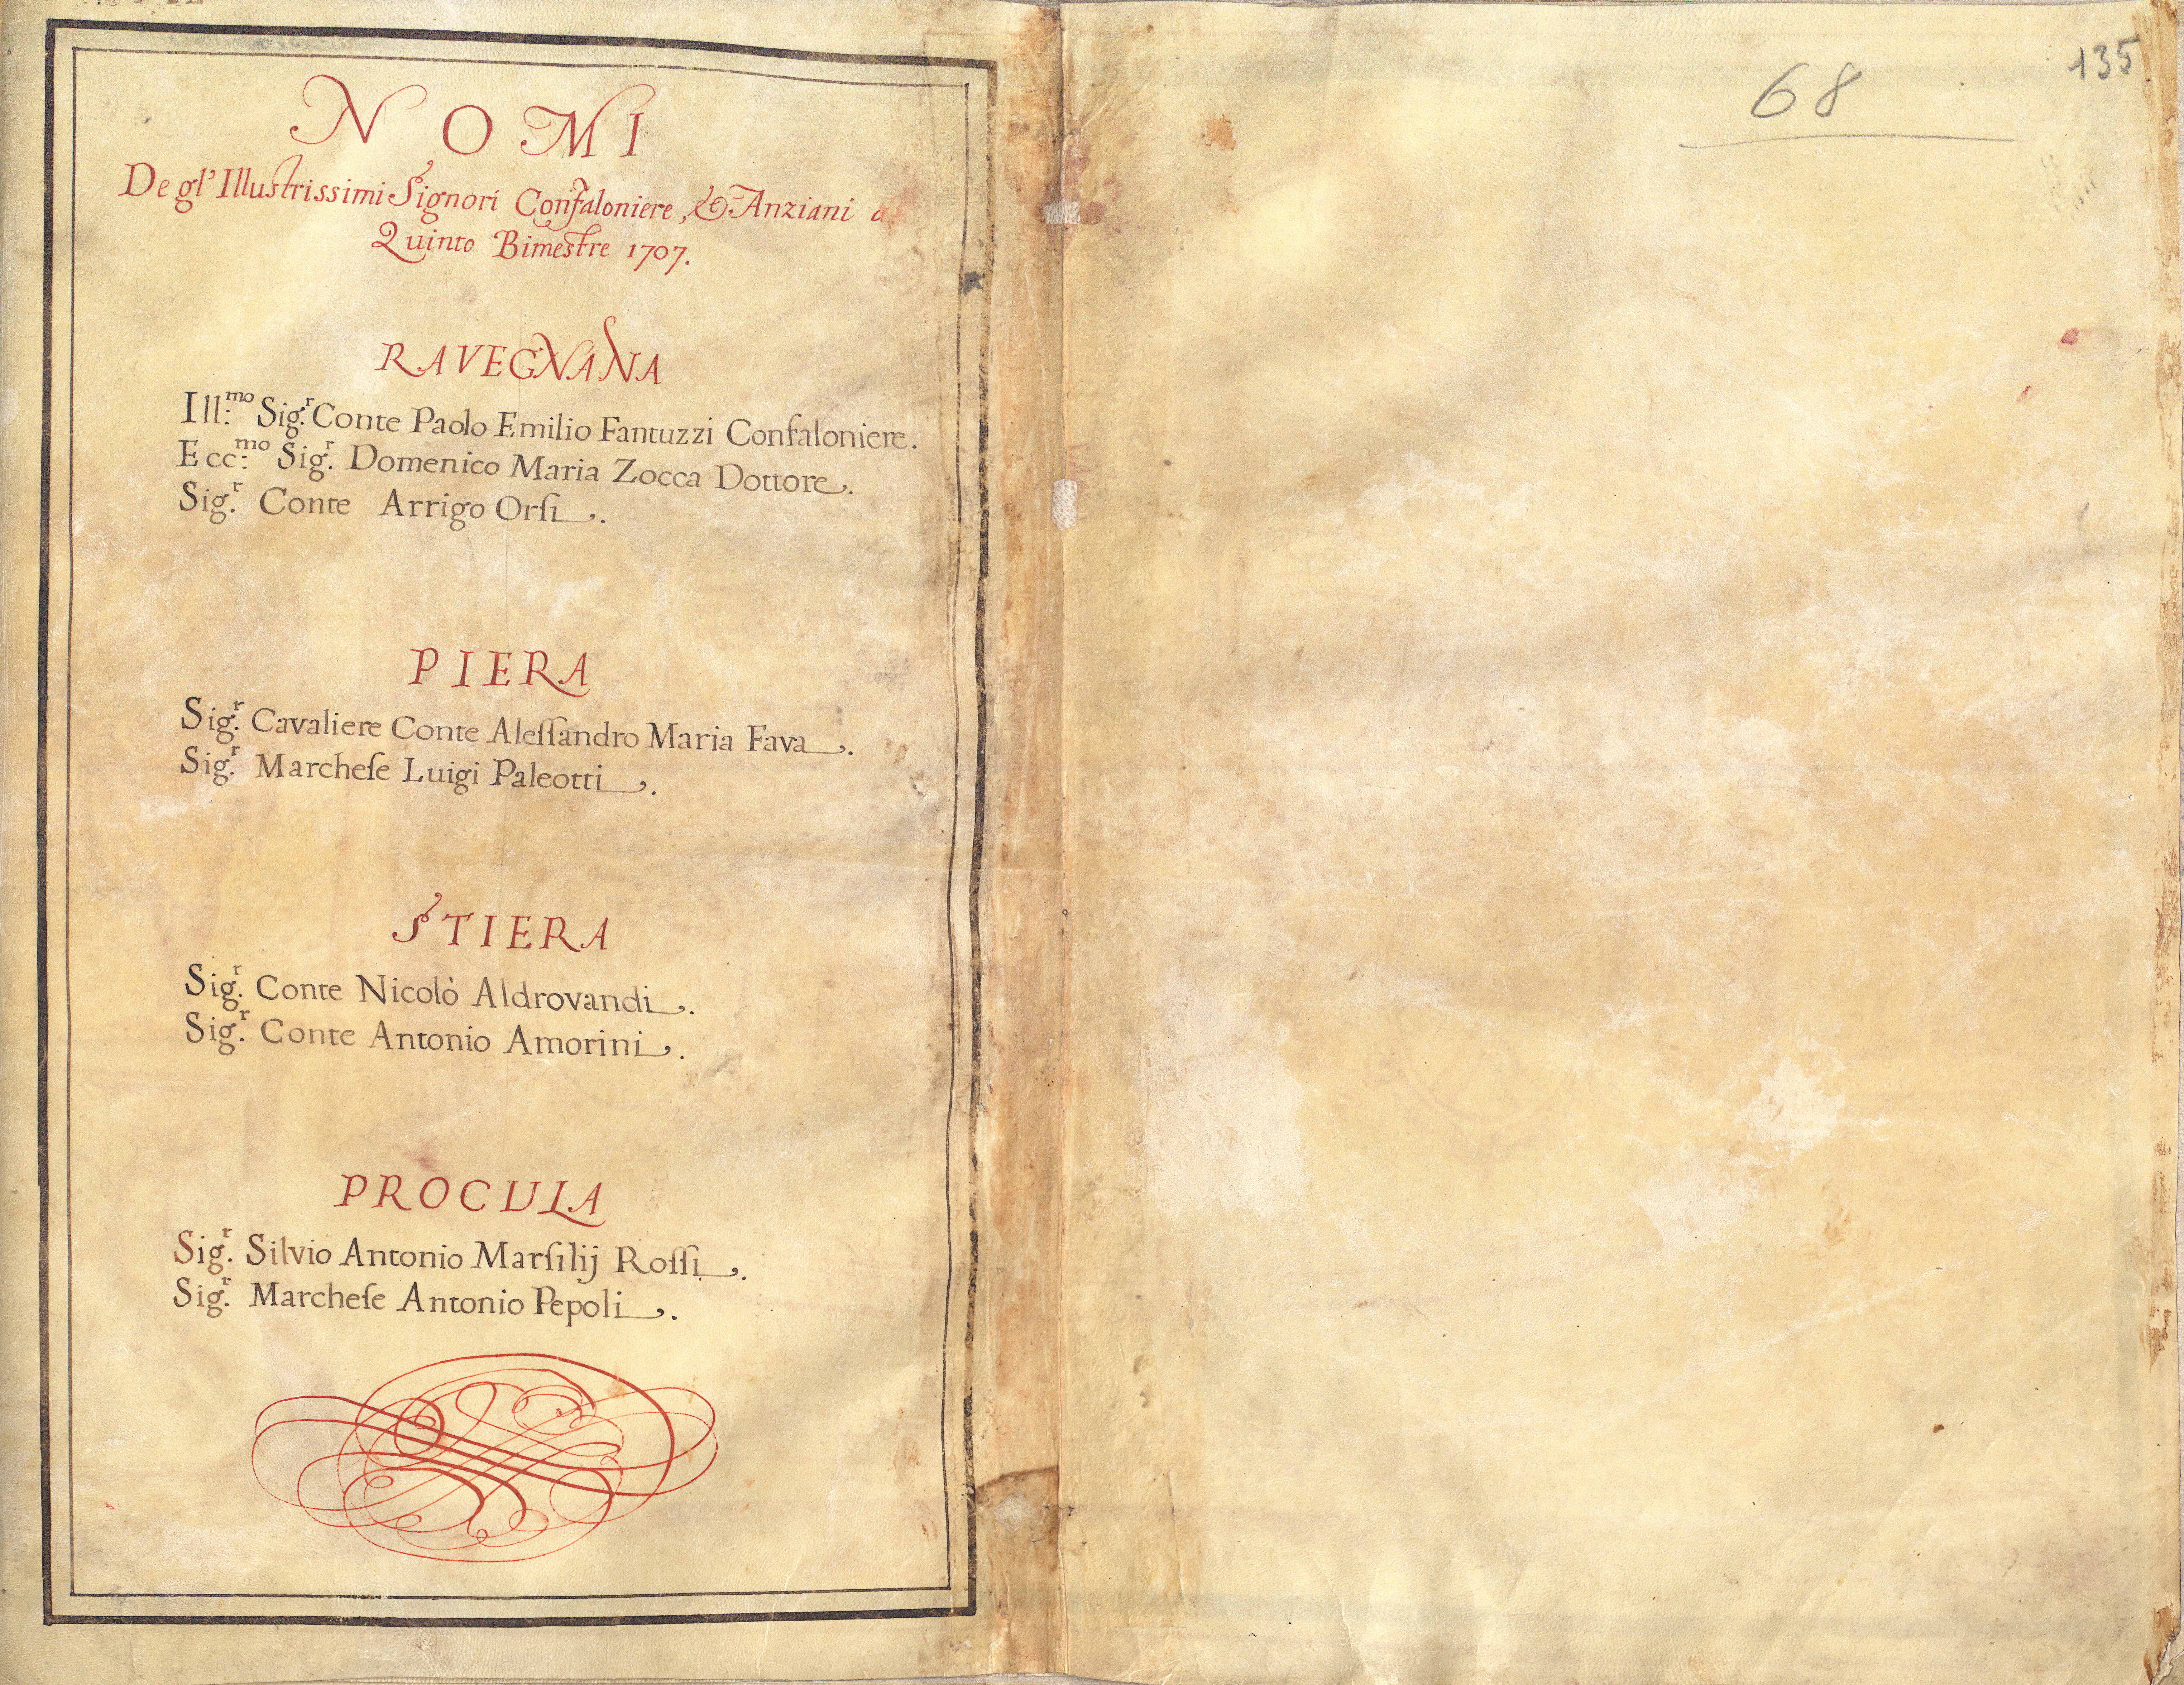 NOMI
De gl' Illustrissimi Signori Confaloniere, & Anziani
Quinto Bimestre 1707.
RAVEGNANA
Ill:mo Sig.r Conte Paolo Emilio Fantuzzi Confaloniere.
Ecc:mo Sig.r Domenico Maria Zocca Dottore.
Sig.r Conte Arrigo Orſi.
PIERA
Sig.r Cavaliere Conte Aleſſandro Maria Fava.
Sig.r Marcheſe Luigi Paleotti.
STIERA
Sig.r Conte Nicolò Aldrovandi.
Sig.r Conte Antonio Amorini.
PROCULA
Sig.r Silvio Antonio Marſilij Roſſi.
Sig.r Marcheſe Antonio Pepoli.
68
135